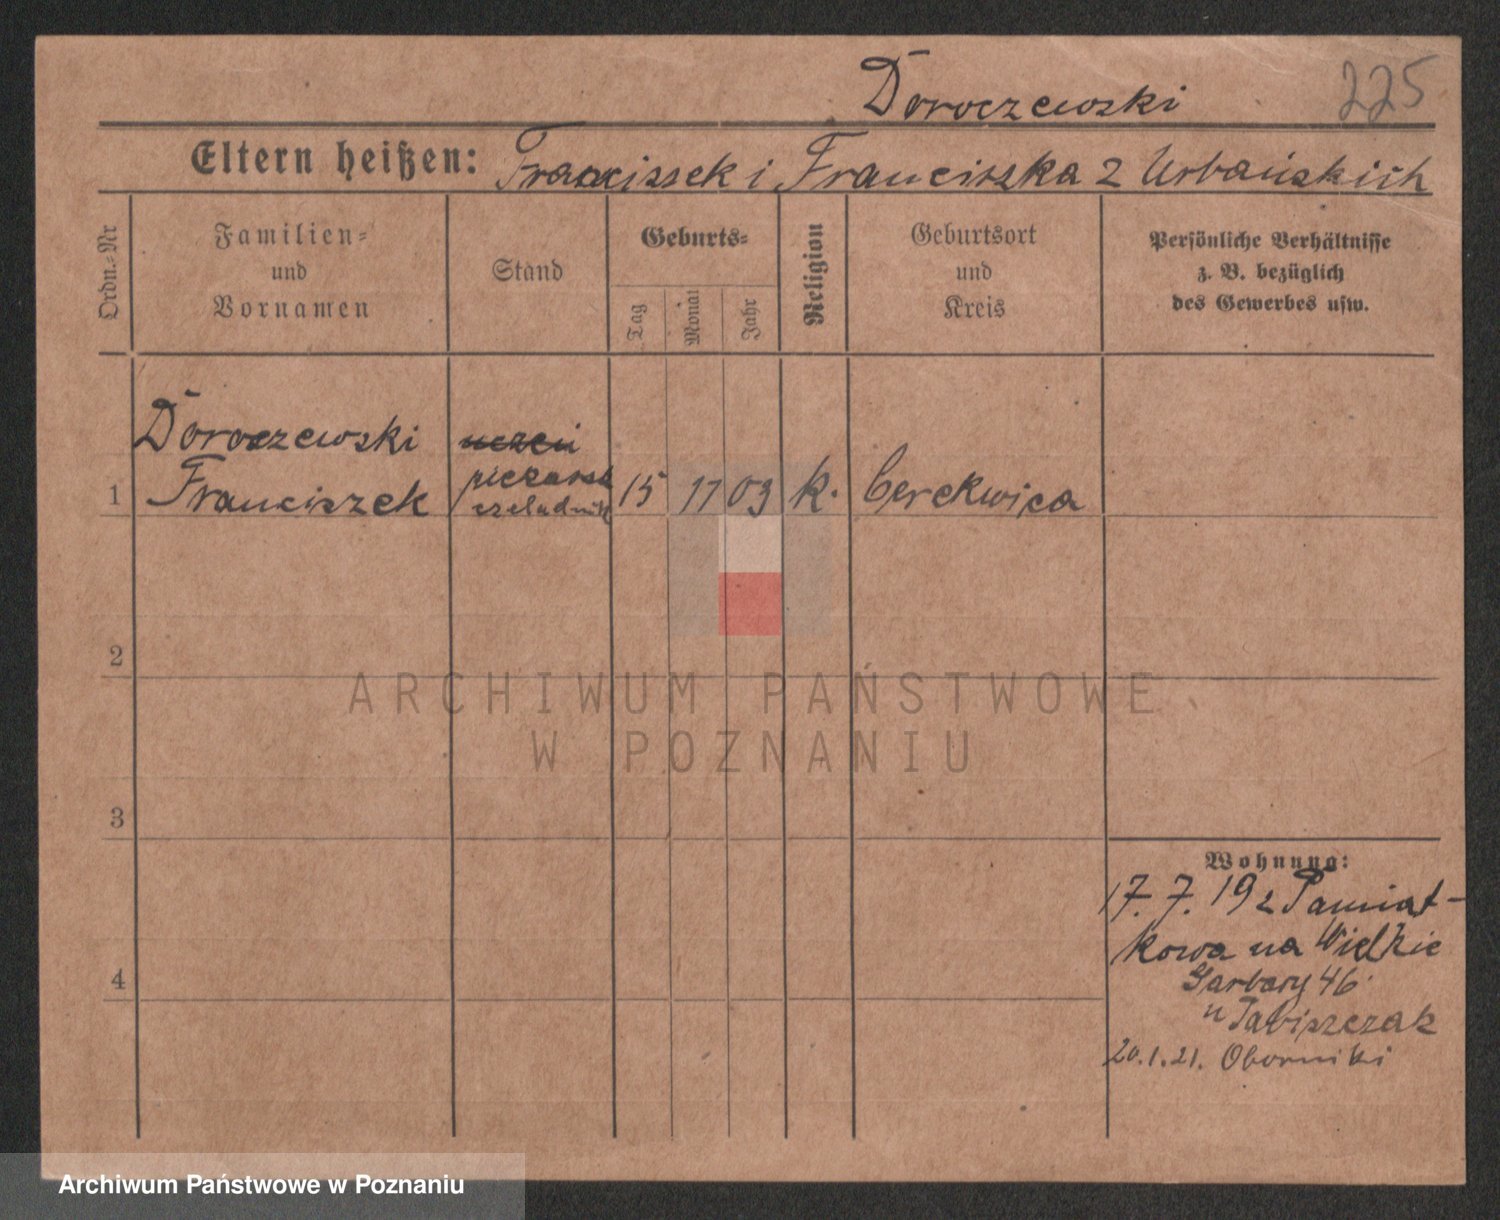 Doroczewski 225
Eltern heißen: Franciszek i Franciszka z Urbańskich
Ordn.-Nr
Familien-
und
Vornamen
Stand
Geburts-
Tag
Monat
Jahr
Religion
Geburtsort
und
Kreis
Persönliche Verhältnisse
z. B. bezüglich
des Gewerbes usw.
Doroczewski uczeń
1 Franciszek piekarsk
czeladnik 15 11 03 k. Cerekwica
2
ARCHIWUM PAŃSTWOWE
W POZNANIU
3
Wohnung:
17. 7. 19 z Pamiat-
kowa na Wielkie
Garbary 46
u
20.1.21. Oborniki
4
Archiwum Państwowe w Poznaniu